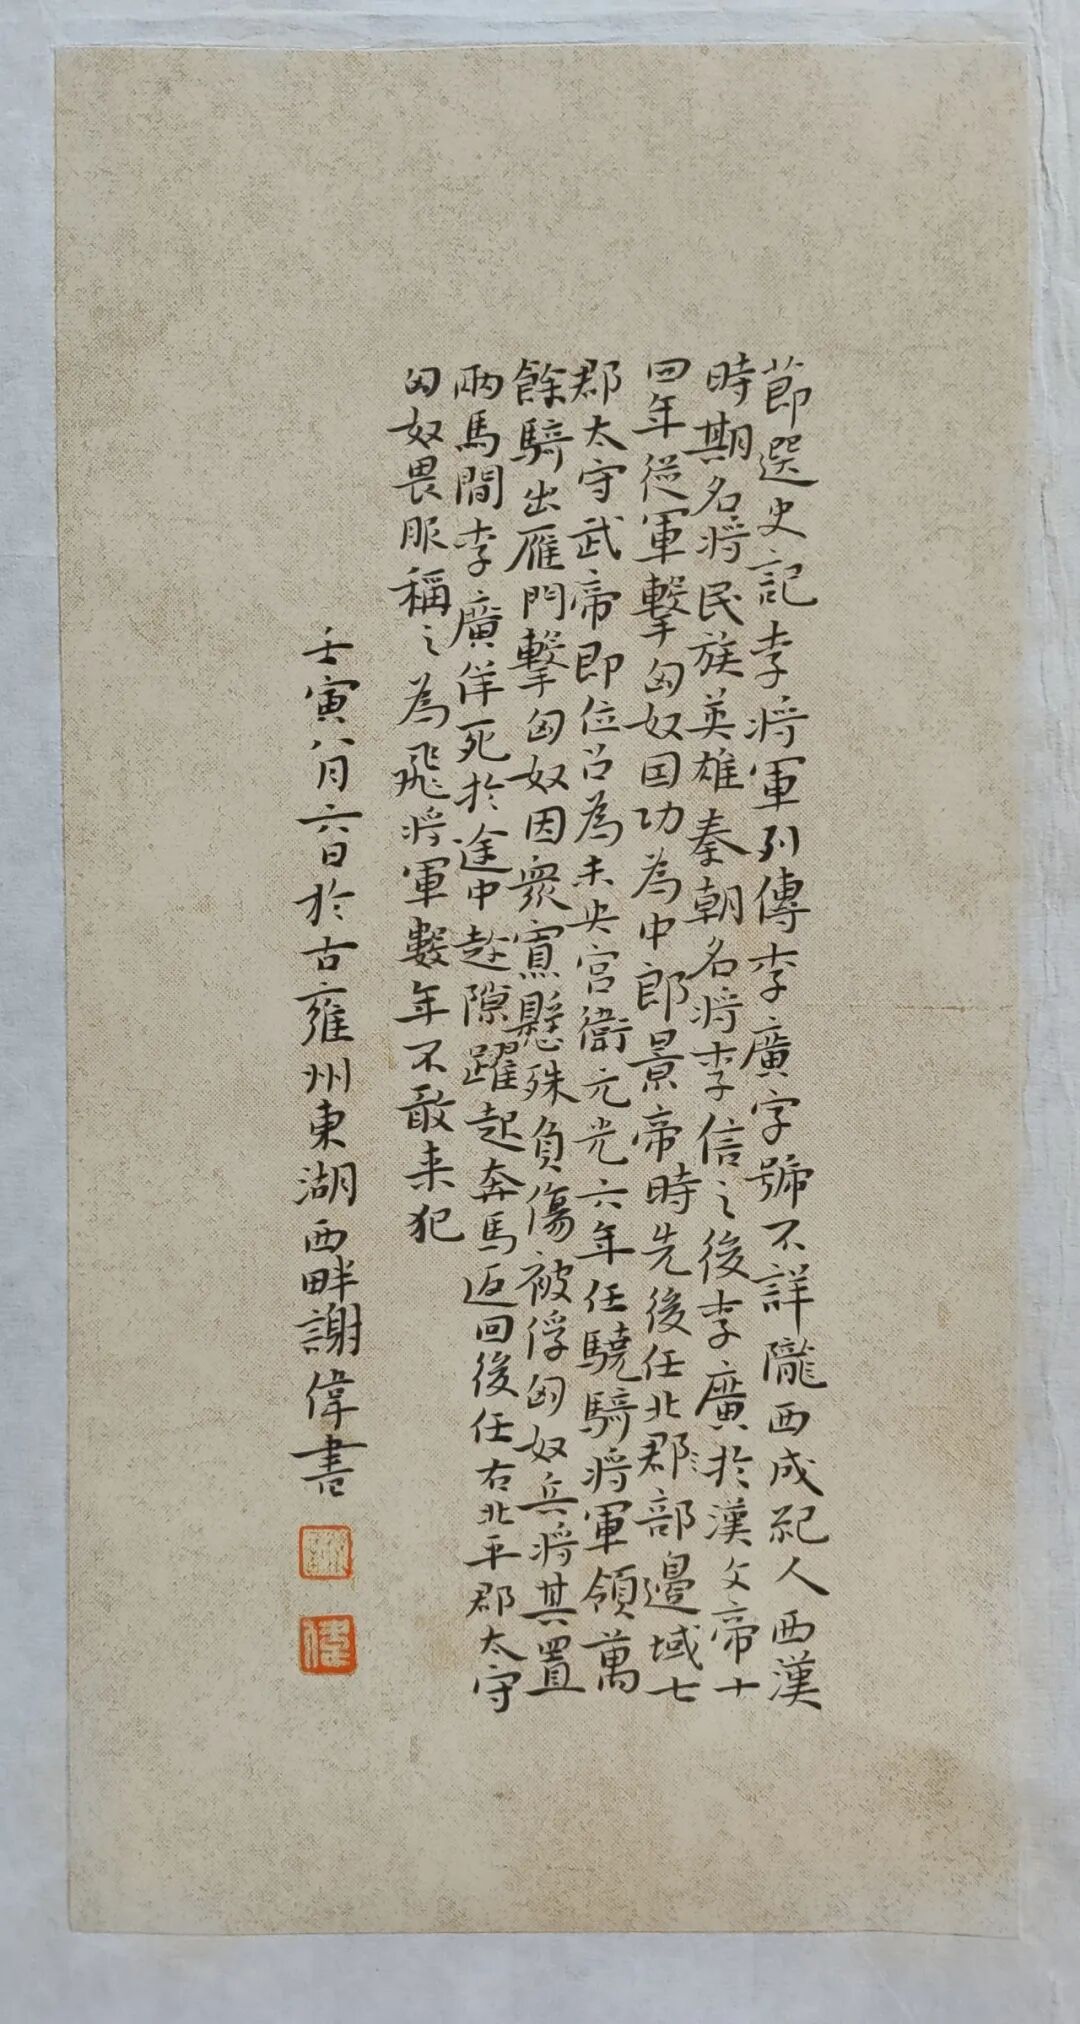 節選史記李將軍列傳李廣字號不詳隴西成紀人西漢
時期名將民族英雄秦朝名將李信之後李廣於漢文帝十
四年從軍擊匈奴因功為中郎景帝時先後任北郡部邊域七
郡太守武帝即位召為未央宮衛元光六年任驍騎將軍領萬
餘騎出雁門擊匈奴因眾寡懸殊負傷被俘匈奴兵將其置
兩馬間李廣佯死於途中趁隙躍起奔馬返回後任右北平郡太守
匈奴畏服稱之為飛將軍數年不敢来犯
壬寅八月六日於古雍州東湖西畔謝偉書
偉